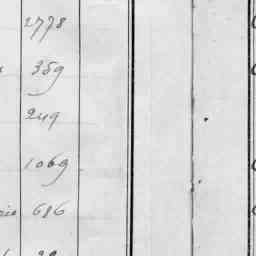 2778
359
249
1069
686